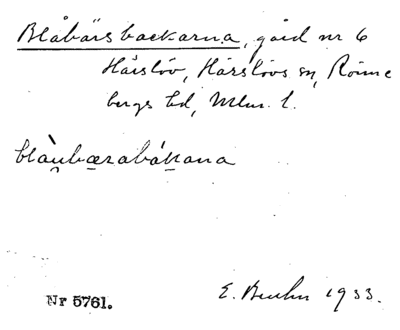 Blåbärsbackarna, gård nr 6
Hårslöv, Hårslövs sn, Rönne
bergs hd, Mlm. l.
blàu̯bærabákana
Nr 5761.
E. Bruhn 1933.